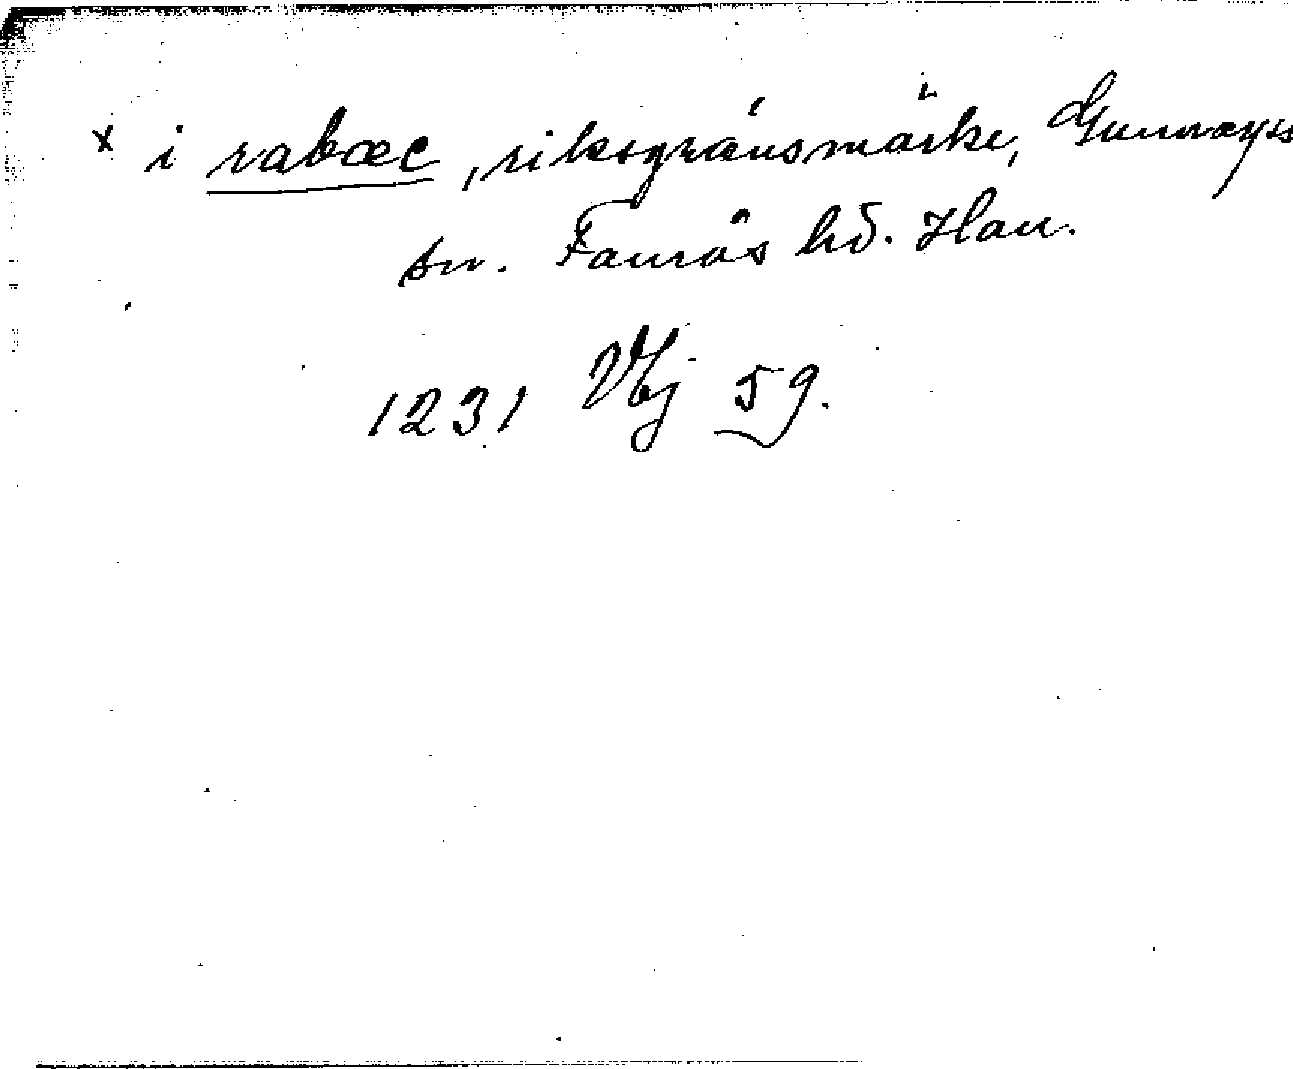 x i rabæc, riksgränsmärke, Gunnarps
sn. Faurås hd. Hall.
1231 Vbj 59.